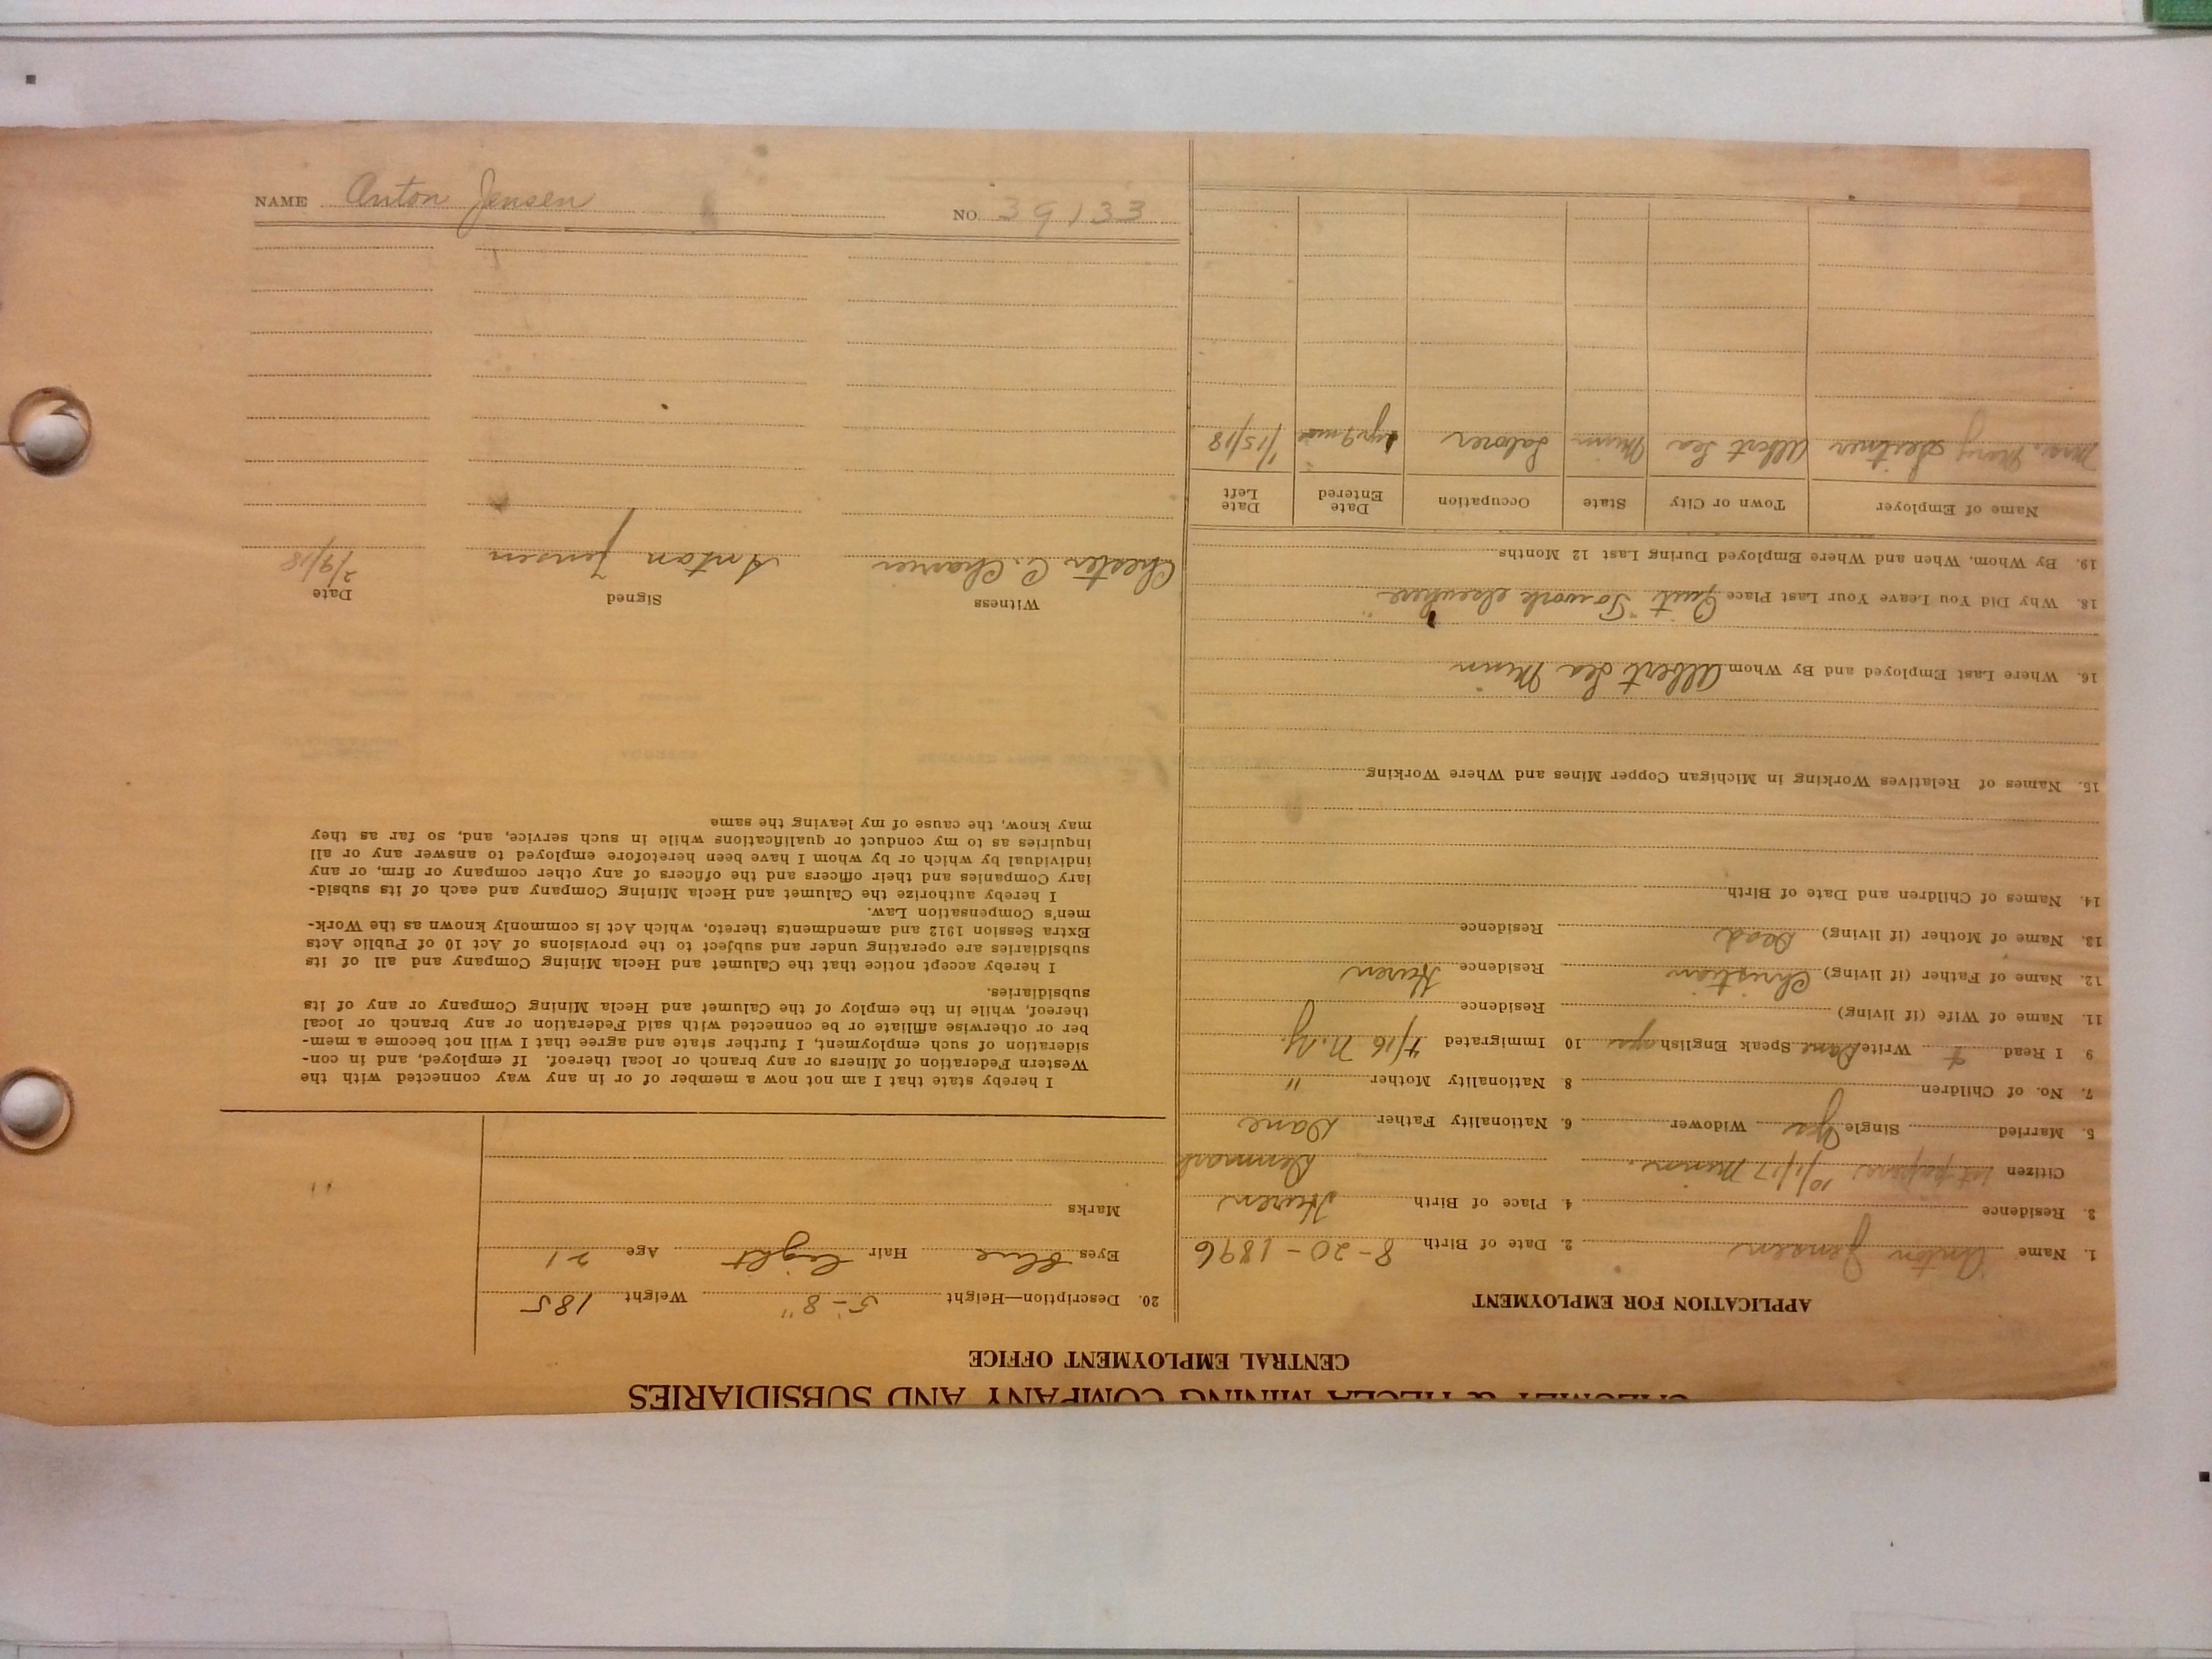 NAME Anton Jensen NO. 39133
CALUMET & HECLA MINING COMPANY AND SUBSIDIARIES
CENTRAL EMPLOYMENT OFFICE
APPLICATION FOR EMPLOYMENT
1. Name Anton Jensen 2. Date of Birth 8-20-1896
3. Residence 4. Place of Birth
Citizen 1st papers 10/1/17 Minn. Denmark
5. Married Single Yes Widower 6. Nationality Father Dane
7. No. of Children 8. Nationality Mother "
9 I Read Write Dane Speak English yes 10 Immigrated 4/16 N.Y.
11. Name of Wife (if living) Residence
12. Name of Father (if living) Christian Residence
13. Name of Mother (if living) Dead Residence
14. Names of Children and Date of Birth
15. Names of Relatives Working in Michigan Copper Mines and Where Working
16. Where Last Employed and By Whom Albert Lea Minn
18. Why Did You Leave Your Last Place Quit To work elsewhere
19. By Whom, When and Where Employed During Last 12 Months
Name of Employer Town or City State Occupation Date Entered Date Left
Mrs. Mary Albert Lea Minn Laborer 1/15/18
20. Description—Height 5-8" Weight 185
Eyes blue Hair light Age 21
Marks
I hereby state that I am not now a member of or in any way connected with the
Western Federation of Miners or any branch or local thereof. If employed, and in con-
sideration of such employment, I further state and agree that I will not become a mem-
ber or otherwise affiliate or be connected with said Federation or any branch or local
thereof, while in the employ of the Calumet and Hecla Mining Company or any of its
subsidiaries.
I hereby accept notice that the Calumet and Hecla Mining Company and all of its
subsidiaries are operating under and subject to the provisions of Act 10 of Public Acts
Extra Session 1912 and amendments thereto, which Act is commonly known as the Work-
men's Compensation Law.
I hereby authorize the Calumet and Hecla Mining Company and each of its subsid-
iary Companies and their officers and the officers of any other company or firm, or any
individual by which or by whom I have been heretofore employed to answer any or all
inquiries as to my conduct or qualifications while in such service, and, so far as they
may know, the cause of my leaving the same
Witness Signed Date
Chester C. Anton Jensen 2/9/18